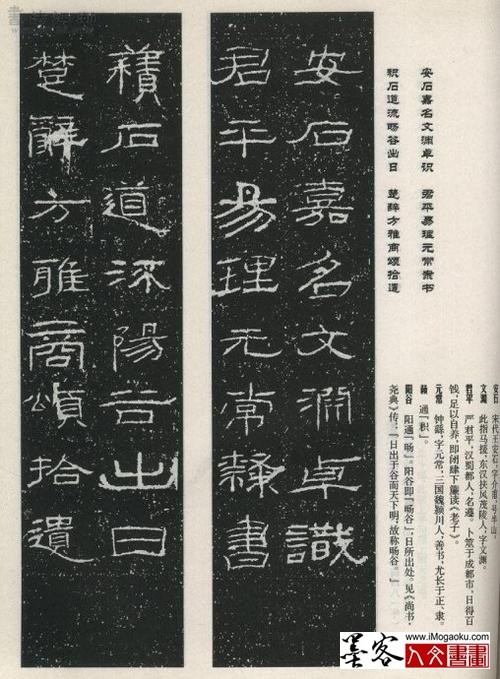 安石嘉名文渊卓识 君平易理元常隶书
积石道流旸谷出日 楚辞方雅商颂拾遗
安石 宋代王安石,字介甫,号半山。
文渊 此指马援,东汉扶风茂陵人,字文渊。
君平 严君平,汉蜀郡人,名遵。卜筮于成都市,日得百
钱,足以自养,即闭肆下簾读《老子》。
元常 钟繇,字元常,三国魏颍川人,善书,尤长于正、隶。
通「积」。
阳谷 阳通「旸」,阳谷即「旸谷」,日所出处。见《尚书·
尧典》传:「日出于谷而天下明,故称旸谷。」
安石嘉名文淵卓識
君平易理元常隸書
積石道流陽谷出日
楚辭方雅商頌拾遺
墨客 人文書畫
www.iMogaoku.com